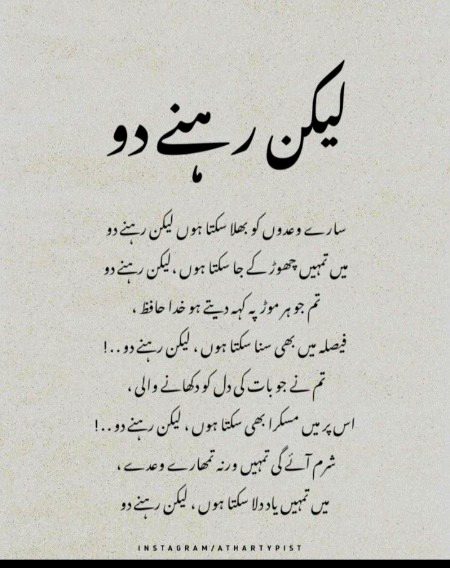 لیکن رہنے دو
سارے وعدوں کو بھلا سکتا ہوں لیکن رہنے دو
میں تمہیں چھوڑ کے جا سکتا ہوں ، لیکن رہنے دو
تم جو ہر موڑ پہ کہہ دیتے ہو خدا حافظ ،
فیصلہ میں بھی سنا سکتا ہوں ، لیکن رہنے دو ..!
تم نے جو بات کی دل کو دکھانے والی ،
اس پر میں مسکرا بھی سکتا ہوں ، لیکن رہنے دو ..!
شرم آئے گی تمہیں ورنہ تمھارے وعدے ،
میں تمہیں یاد دلا سکتا ہوں ، لیکن رہنے دو
INSTAGRAM/ATHARTYPIST